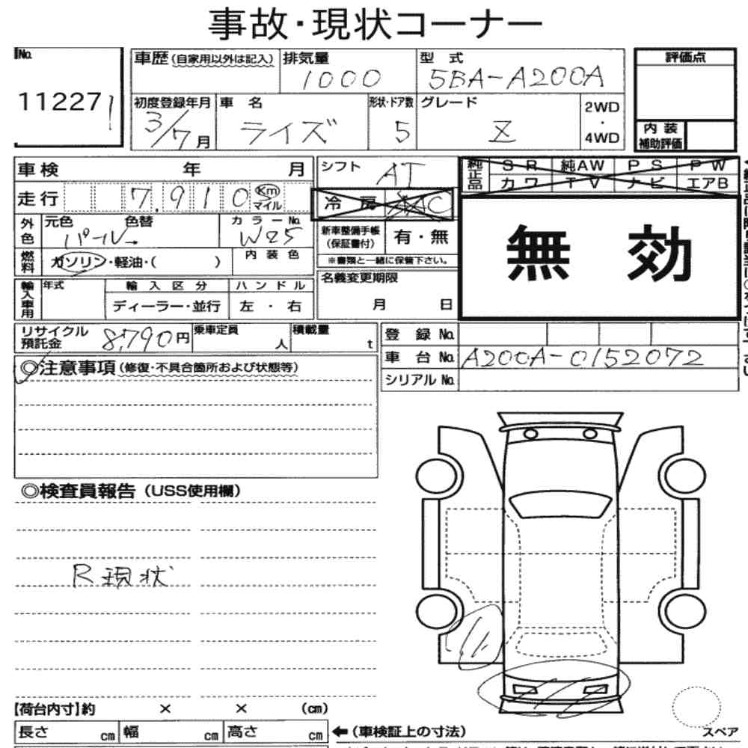 事故・現状コーナー
No. 11227
車歴 (自家用以外は記入) 排気量 1000 型式 5BA-A200A 評価点
初度登録年月 3/7月 車名 ライズ 形状・ドア数 5 グレード Z 2WD・4WD 内装補助評価
車検 年 月 シフト AT 純正品 SR 純AW PS PW
カワ TV ナビ エアB
走行 7,910 Km マイル 冷房 AAC
外色 元色 パール 色替 カラーNo. W25 新車整備手帳 (保証書付) 有・無 無効
燃料 ガソリン・軽油・( ) 内装色 ※書類と一緒に保管下さい。
輸入車用 年式 輸入区分 ハンドル 名義変更期限
ディーラー・並行 左・右 月 日
リサイクル預託金 8,790円 乗車定員 人 積載量 t 登録No.
車台No. A200A-0152072
◎注意事項 (修復・不具合箇所および状態等) シリアルNo.
◎検査員報告 (USS使用欄)
R現状
【荷台内寸】約 × × (cm)
長さ cm 幅 cm 高さ cm ←(車検証上の寸法) スペア